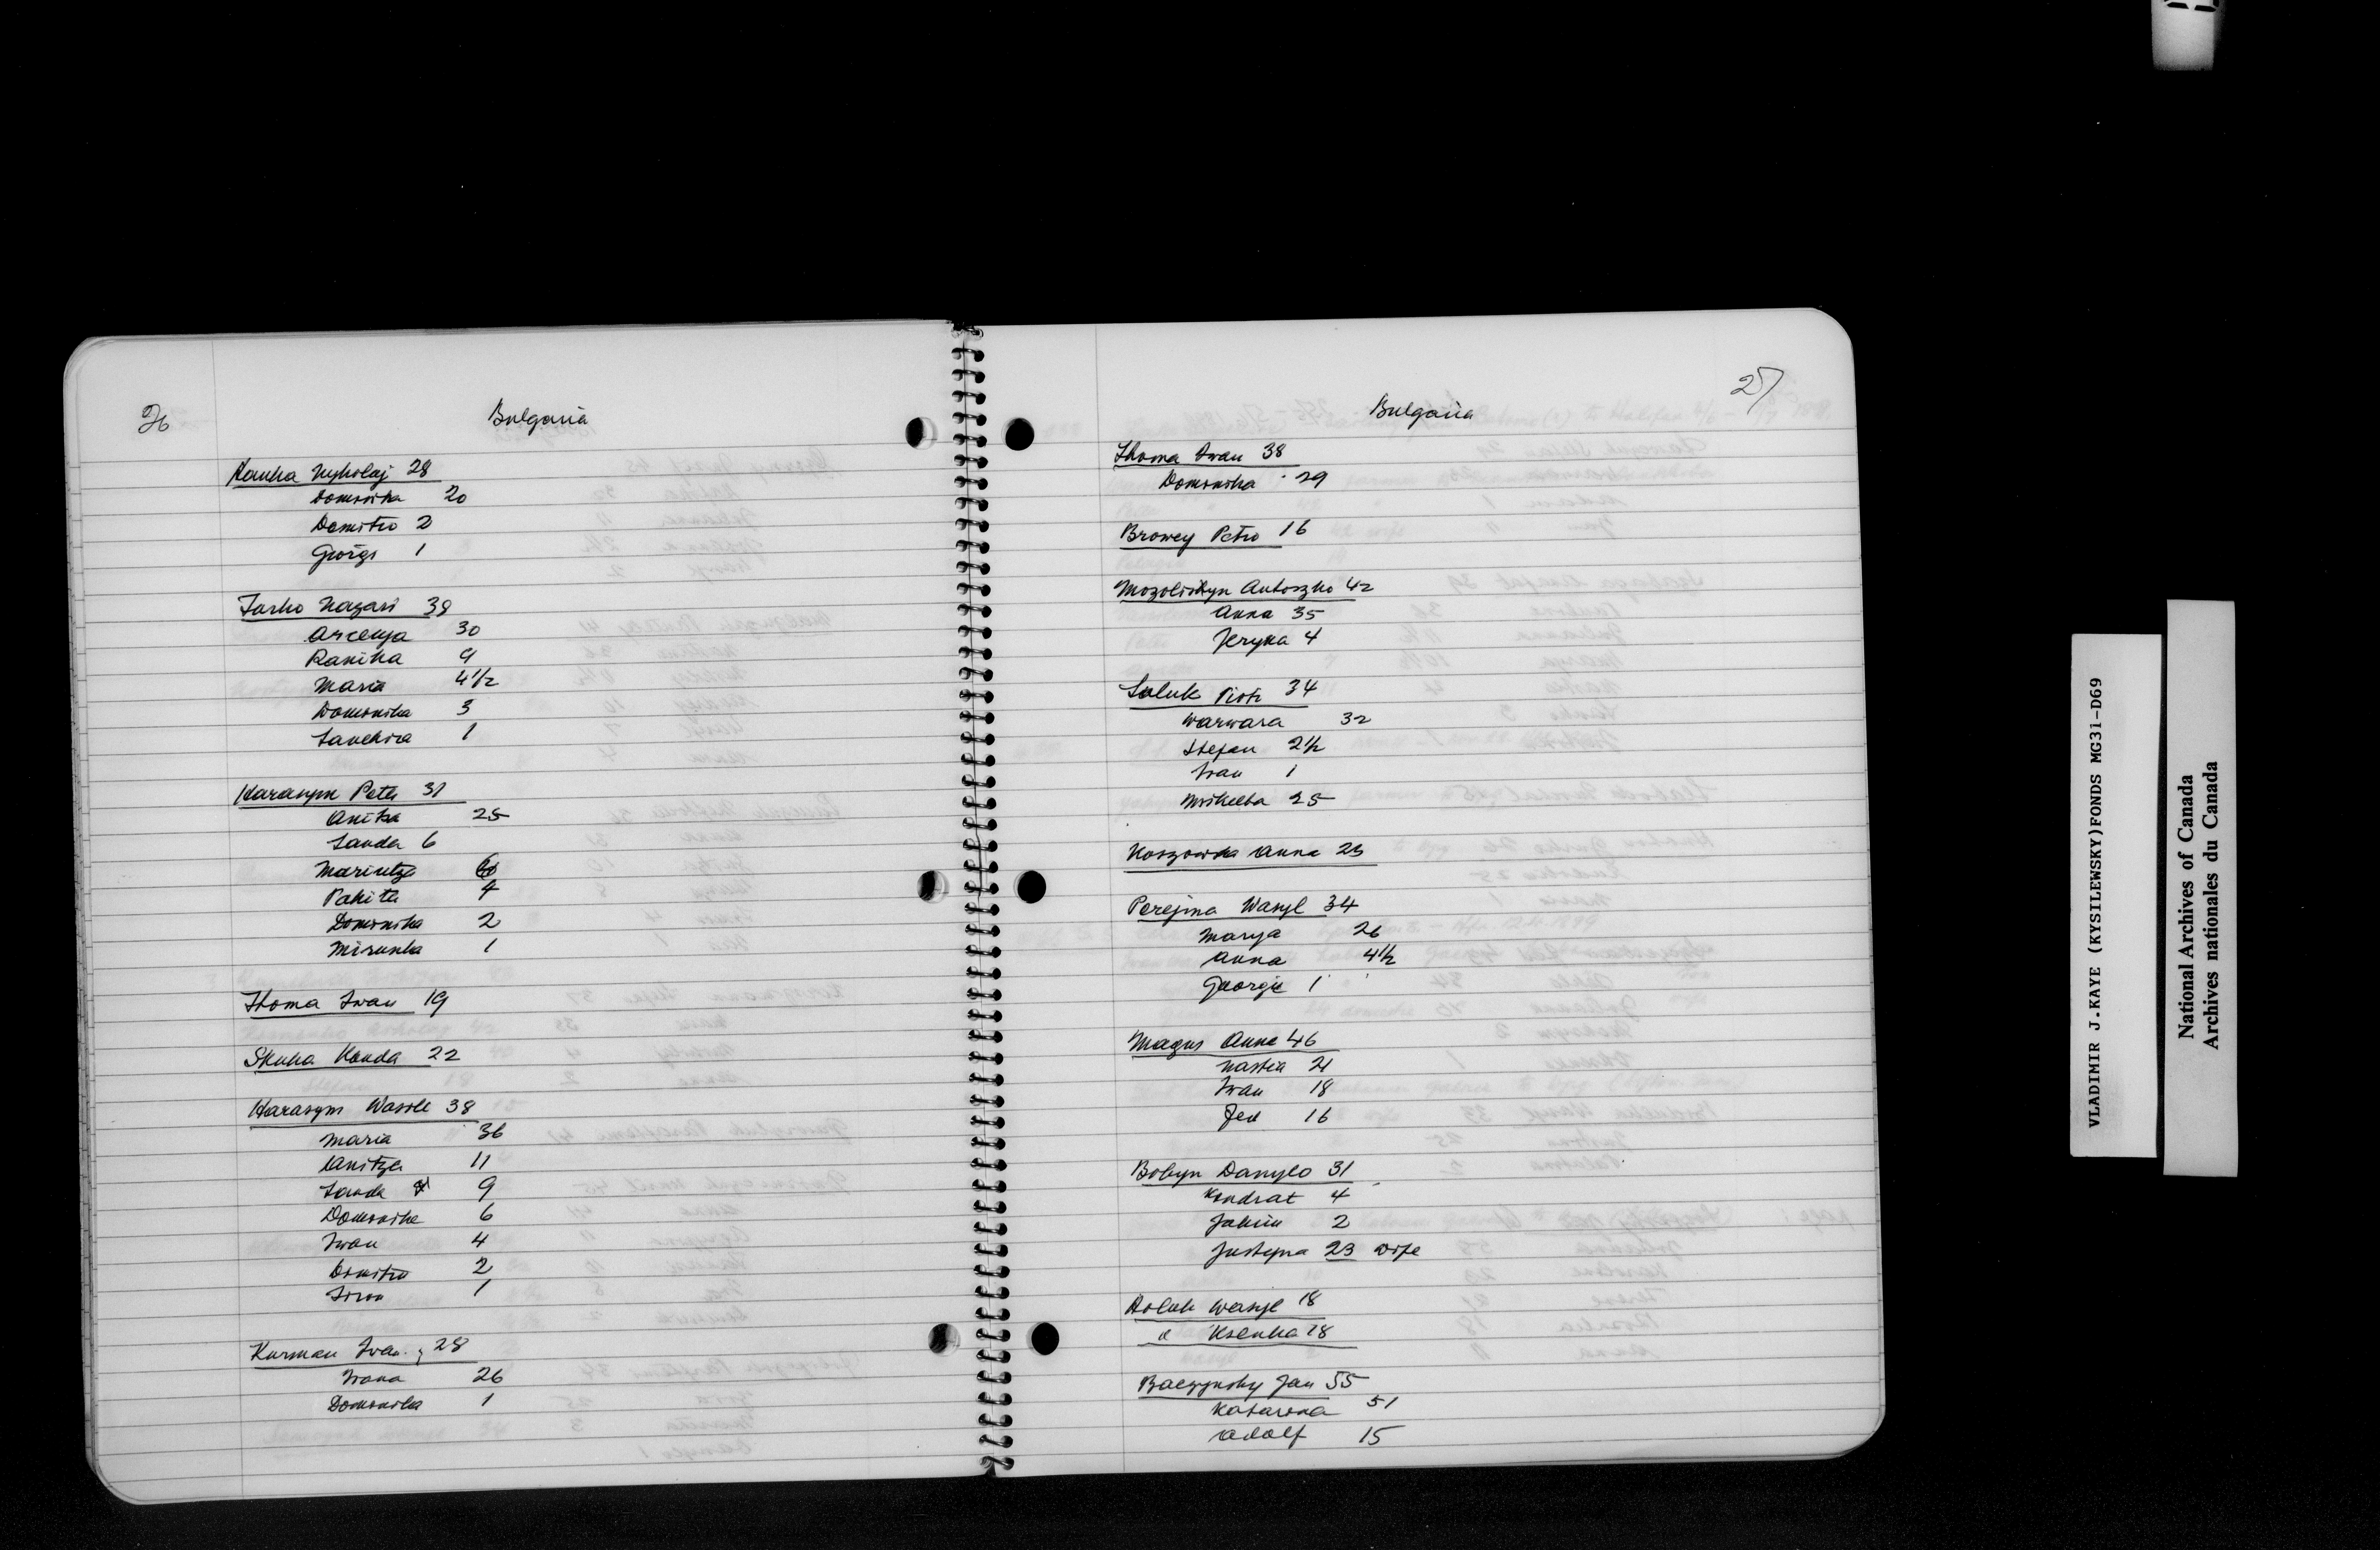 26
Bulgaria
Hauka Mykolaj 28
Domnika 20
Domitro 2
Giorgi 1
Jurko Nazari 38
Arcenja 30
Rakiha 9
Maria 4 1/2
Domonika 3
Sanckira 1
Harasym Peter 31
Anitza 25
Sanda 6
Marintza 6
Pakita 4
Domonika 2
Mirunka 1
Thoma Iwan 19
Skuka Konda 22
Harasym Wasile 38
Maria 36
Anitza 11
Sanda 9
Domonika 6
Iwan 4
Dmitro 2
1
Kurman Iwan 28
Iwana 26
Domonika 1
27
Bulgaria
Thoma Iwan 38
Domonika 29
Browey Petro 16
Mozoliskyn Antoszko 42
Anna 35
Jeryna 4
Saluk Piotr 34
Warwara 32
Stefan 2 1/2
Iwan 1
Mikelba 25
Koszowska Anna 23
Perejma Wasyl 34
Marya 26
Anna 4 1/2
Georgie 1
Magus Anna 46
Nastia 21
Iwan 18
Fed 16
Bobyn Danylo 31
Kondrat 4
Jakim 2
Justyna 23 wife
Holuk Wasyl 18
" Ksenka 18
Baczynsky Jan 55
Katarina 51
Adolf 15
VLADIMIR J.KAYE (KYSILEWSKY)FONDS MG31-D69
National Archives of Canada
Archives nationales du Canada